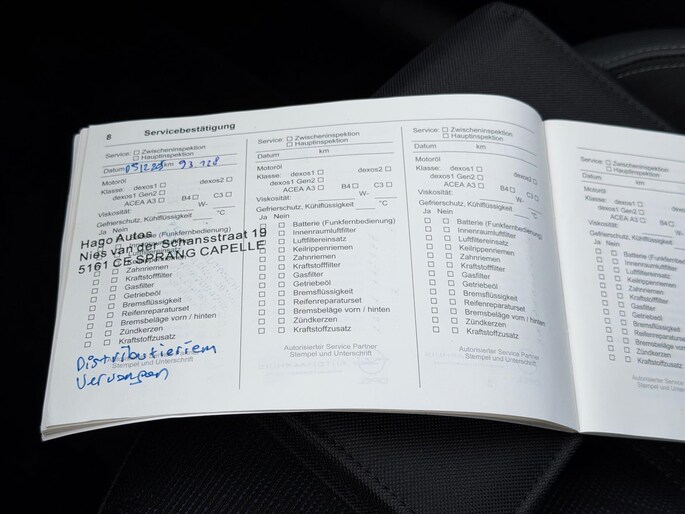 8 Servicebestätigung
Service: Zwischeninspektion
Hauptinspektion
Datum km 93.128
Motoröl
Klasse: dexos1 dexos2
dexos1 Gen2
ACEA A3 B4 C3
Viskosität: W-
Gefrierschutz, Kühlflüssigkeit °C
Ja Nein
Hago Autos
Nies van der Schansstraat 19
5161 CE SPRANG CAPELLE
Zahnriemen
Kraftstofffilter
Gasfilter
Getriebeöl
Bremsflüssigkeit
Reifenreparaturset
Bremsbeläge vorn / hinten
Zündkerzen
Kraftstoffzusatz
Distributieriem
Vervangen
Stempel und Unterschrift
Service: Zwischeninspektion
Hauptinspektion
Datum km
Motoröl
Klasse: dexos1 dexos2
dexos1 Gen2
ACEA A3 B4 C3
Viskosität: W-
Gefrierschutz, Kühlflüssigkeit °C
Ja Nein
Batterie (Funkfernbedienung)
Innenraumluftfilter
Luftfiltereinsatz
Keilrippenriemen
Zahnriemen
Kraftstofffilter
Gasfilter
Getriebeöl
Bremsflüssigkeit
Reifenreparaturset
Bremsbeläge vorn / hinten
Zündkerzen
Kraftstoffzusatz
Autorisierter Service Partner
Stempel und Unterschrift
Service: Zwischeninspektion
Hauptinspektion
Datum km
Motoröl
Klasse: dexos1 dexos2
dexos1 Gen2
ACEA A3 B4 C3
Viskosität: W-
Gefrierschutz, Kühlflüssigkeit °C
Ja Nein
Batterie (Funkfernbedienung)
Innenraumluftfilter
Luftfiltereinsatz
Keilrippenriemen
Zahnriemen
Kraftstofffilter
Gasfilter
Getriebeöl
Bremsflüssigkeit
Reifenreparaturset
Bremsbeläge vorn / hinten
Zündkerzen
Kraftstoffzusatz
Autorisierter Service Partner
Stempel und Unterschrift
Service: Zwischeninspektion
Hauptinspektion
Datum km
Motoröl
Klasse: dexos1
dexos1 Gen2
ACEA A3 B4
Viskosität: W-
Gefrierschutz, Kühlflüssigkeit
Ja Nein
Batterie (Funkfernbe
Innenraumluftfilter
Luftfiltereinsatz
Keilrippenriemen
Zahnriemen
Kraftstofffilter
Gasfilter
Getriebeöl
Bremsflüssigkeit
Reifenreparaturset
Bremsbeläge vorn
Zündkerzen
Kraftstoffzusatz
Autorisierter Service
Stempel und Unter